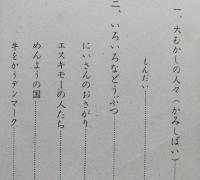 一、大むかしの人々（かみしばい）
もんだい
二、いろいろなどうぶつ
にいさんのおさがり
エスキモーの人たち
めんようの国
牛をかうデンマーク